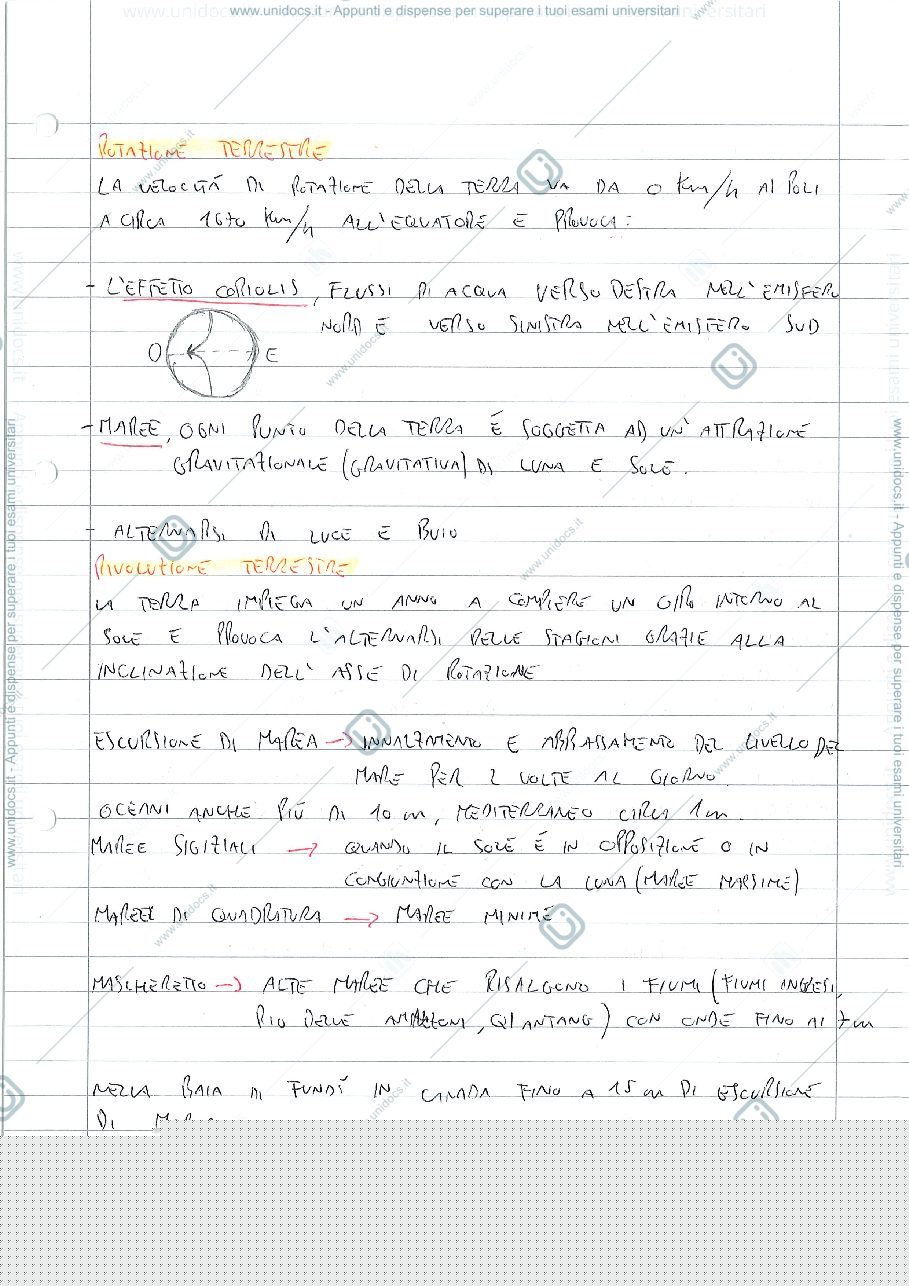 www.unidocs.it - Appunti e dispense per superare i tuoi esami universitari
ROTAZIONE TERRESTRE
LA VELOCITÁ DI ROTAZIONE DELLA TERRA VA DA 0 Km/h AI POLI
A CIRCA 1670 Km/h ALL'EQUATORE E PROVOCA:
- L'EFFETTO CORIOLIS, FLUSSI DI ACQUA VERSO DESTRA NELL'EMISFERO
NORD E VERSO SINISTRA NELL'EMISFERO SUD
O E
- MAREE, OGNI PUNTO DELLA TERRA É SOGGETTA AD UN'ATTRAZIONE
GRAVITAZIONALE (GRAVITATIVA) DI LUNA E SOLE.
- ALTERNARSI DI LUCE E BUIO
RIVOLUZIONE TERRESTRE
LA TERRA IMPIEGA UN ANNO A COMPIERE UN GIRO INTORNO AL
SOLE E PROVOCA L'ALTERNARSI DELLE STAGIONI GRAZIE ALLA
INCLINAZIONE DELL'ASSE DI ROTAZIONE
ESCURSIONE DI MAREA → INNALZAMENTO E ABBASSAMENTO DEL LIVELLO DEL
MARE PER 2 VOLTE AL GIORNO
OCEANI ANCHE PIÚ DI 10 m, MEDITERRANEO CIRCA 1m.
MAREE SIGIZIALI → QUANDO IL SOLE É IN OPPOSIZIONE O IN
CONGIUNZIONE CON LA LUNA (MAREE MASSIME)
MAREE DI QUADRATURA → MAREE MINIME
MASCHERETTO → ALTE MAREE CHE RISALGONO I FIUMI (FIUMI INGLESI,
RIO DELLE AMAZZONI, QIANTANG) CON ONDE FINO AI 7m
NELLA BAIA DI FUNDÝ IN CANADA FINO A 15 m DI ESCURSIONE
DI
www.unidocs.it - Appunti e dispense per superare i tuoi esami universitari
www.unidocs.it - Appunti e dispense per superare i tuoi esami universitari